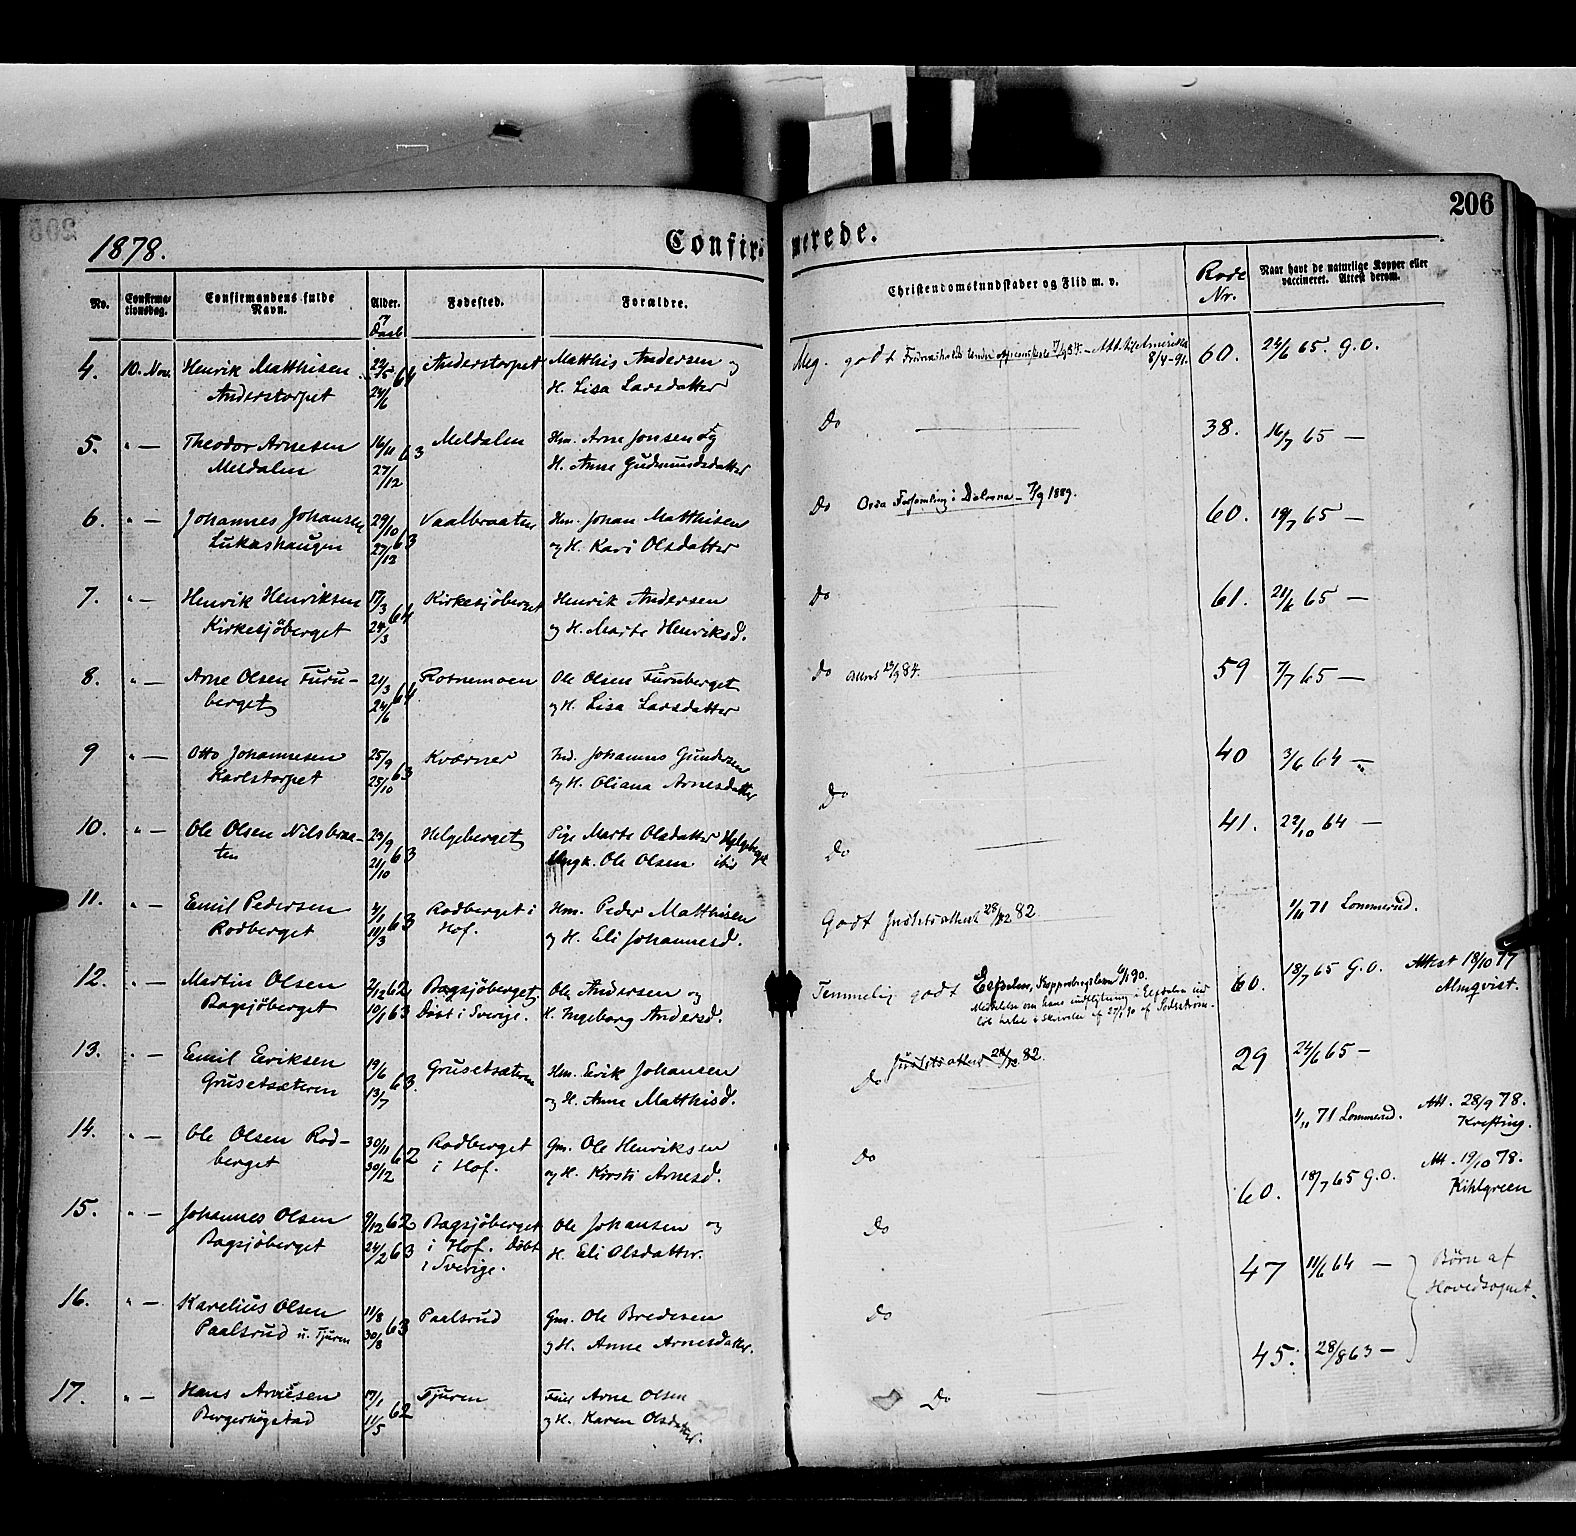 206
1878.
Confirmerede.
No.
Confirma-
tionsdag.
Confirmandens fulde
Navn.
Alder.
og
Daab
Fødested.
Forældre.
Christendomskundskaber og Flid m. v.
Rode
Nr.
Naar havt de naturlige Kopper eller
vaccineret. Attest derom.
4. 10. Nov. Henrik Matthisen 22/5 64 Anderstorpet Matthis Andersen og Meg. godt 7/9 84. - Att. til Amerika 60. 24/6 65. G.O.
Anderstorpet 24/6 H. Lisa Larsdatter 8/4-91.
5. " — Theodor Arnesen 16/11 63 Meldalen Hm. Arne Jonsen og Do 38. 16/7 65 —
Meldalen 27/12 H. Anne Gudmundsdatter
6. " — Johannes Johansen 29/10 63 Vaalbraaten Hm. Johan Matthisen Do Orsa Forsamling i Dalarna - 7/9 1889. 60. 19/7 65 —
Lukashaugen 27/12 og H. Kari Olsdatter
7. " — Henrik Henriksen 17/3 64 Kirkesjöberget Henrik Andersen Do 61. 21/6 65 —
Kirkesjöberget 24/3 og H. Marte Henriksd.
8. " — Arne Olsen Furu- 21/3 64 Rotnemoen Ole Olsen Furuberget Do Attest 13/9 84. 59 7/7 65 —
berget 24/6 og H. Lisa Larsdatter
9 " — Otto Johannesen 25/9 63 Kværner Ind. Johannes Gundersen Do 40 3/6 64 —
Karlstorpet 25/10 og H. Oliana Arnesdatter
10. " — Ole Olsen Nilsbraa- 23/9 63 Helgeberget Pige Marte Olsdatter Helgeberget Do 41. 22/10 64 —
ten 21/10 Ungk. Ole Olsen ibid
11. " — Emil Pedersen 4/1 63 Rodberget i Hm. Peder Matthisen Godt Justitsattest 28/12 82. 1/11 71 Lommerud.
Rodberget 11/3 Hof. og H. Eli Johannesd.
12. " — Martin Olsen 2/12 62 Bagsjöberget Ole Andersen og Temmelig godt Elfdalen, Kopparbergslän 6/1 90. 60. 18/7 65 G.O. Attest 18/10 77
Bagsjöberget 10/1 63 Döbt i Sverige. H. Ingeborg Andersd. Meddelelse om hans indflytning i Elfdalen Almqvist.
i Skrivelse af 27/1 90 af Söderström.
13. " — Emil Eriksen 19/6 63. Grusetsæteren Hm. Erik Johansen Do Justitsattest 28/12 82. 29 24/6 65 —
Grusetsæteren 13/7 og H. Anne Matthisd.
14. " — Ole Olsen Rod- 30/11 62 Rodberget Gm. Ole Henriksen Do 1/11 71 Lommerud. Att. 28/9 78.
berget 30/12 i Hof. og H. Kirsti Arnesd. Krefting.
15. " — Johannes Olsen 9/12 62 Bagsjöberget Ole Johansen og Do 60. 18/7 65 G.O. Att. 19/10 78.
Bagsjöberget 24/2 63 i Hof. Döbt H. Eli Olsdatter. Kihlgreen
i Sverige.
16. " — Karelius Olsen 11/8 63 Paalsrud Gm. Ole Bredesen Do 47 11/6 64 — Børn af
Paalsrud u. Tjuren 30/8 og H. Anne Arnesdatter. Hovedsognet.
17. " — Hans Arnesen 17/1 62 Tjuren Arne Olsen Do 45. 28/8 63 —
Bergerhögstad 11/5 og H. Karen Olsdatter.